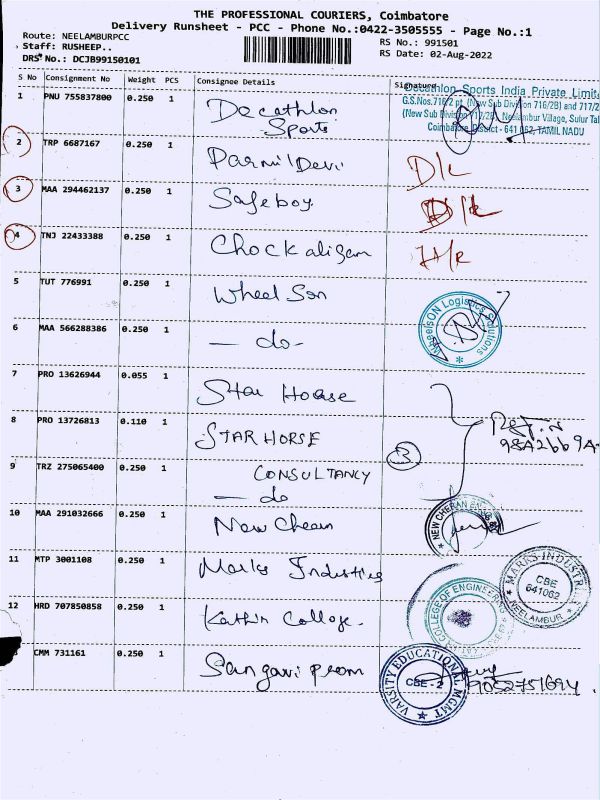 THE PROFESSIONAL COURIERS, Coimbatore
Delivery Runsheet - PCC - Phone No.:0422-3505555 - Page No.:1
Route: NEELAMBURPCC
Staff: RUSHEEP..
DRS No.: DCJB99150101
RS No.: 991501
RS Date: 02-Aug-2022
S No Consignment No Weight PCS Consignee Details Signature
1 PNU 755837800 0.250 1 Decathlon Sports
Decathlon Sports India Private Limit
G.S.Nos.716/2 pt. (New Sub Division 716/2B) and 717/2
(New Sub Division 717/2B), Neelambur Village, Sulur Tal
Coimbatore District - 641 062, TAMIL NADU
2 TRP 6687167 0.250 1 Parmil Devi D/L
3 MAA 294462137 0.250 1 Safeboy D/L
4 TNJ 22433388 0.250 1 Chockaligam
5 TUT 776991 0.250 1 Wheel Son
WheelsON Logistics Solutions
6 MAA 566288386 0.250 1 — do -
7 PRO 13626944 0.055 1 Star Hoarse
8 PRO 13726813 0.110 1 STAR HORSE
3
9 TRZ 275065400 0.250 1 CONSULTANCY
— do
10 MAA 291032666 0.250 1 New Chean
NEW CHERAN
11 MTP 3001108 0.250 1 Marks Industies
MARKS INDUSTRI
CBE
641062
NEELAMBUR
12 HRD 707850858 0.250 1 Kathir College.
COLLEGE OF ENGINEERING
CMM 731161 0.250 1 Sangavi prom
VARSITY EDUCATIONAL MGMT
CBE - 2
9052751694